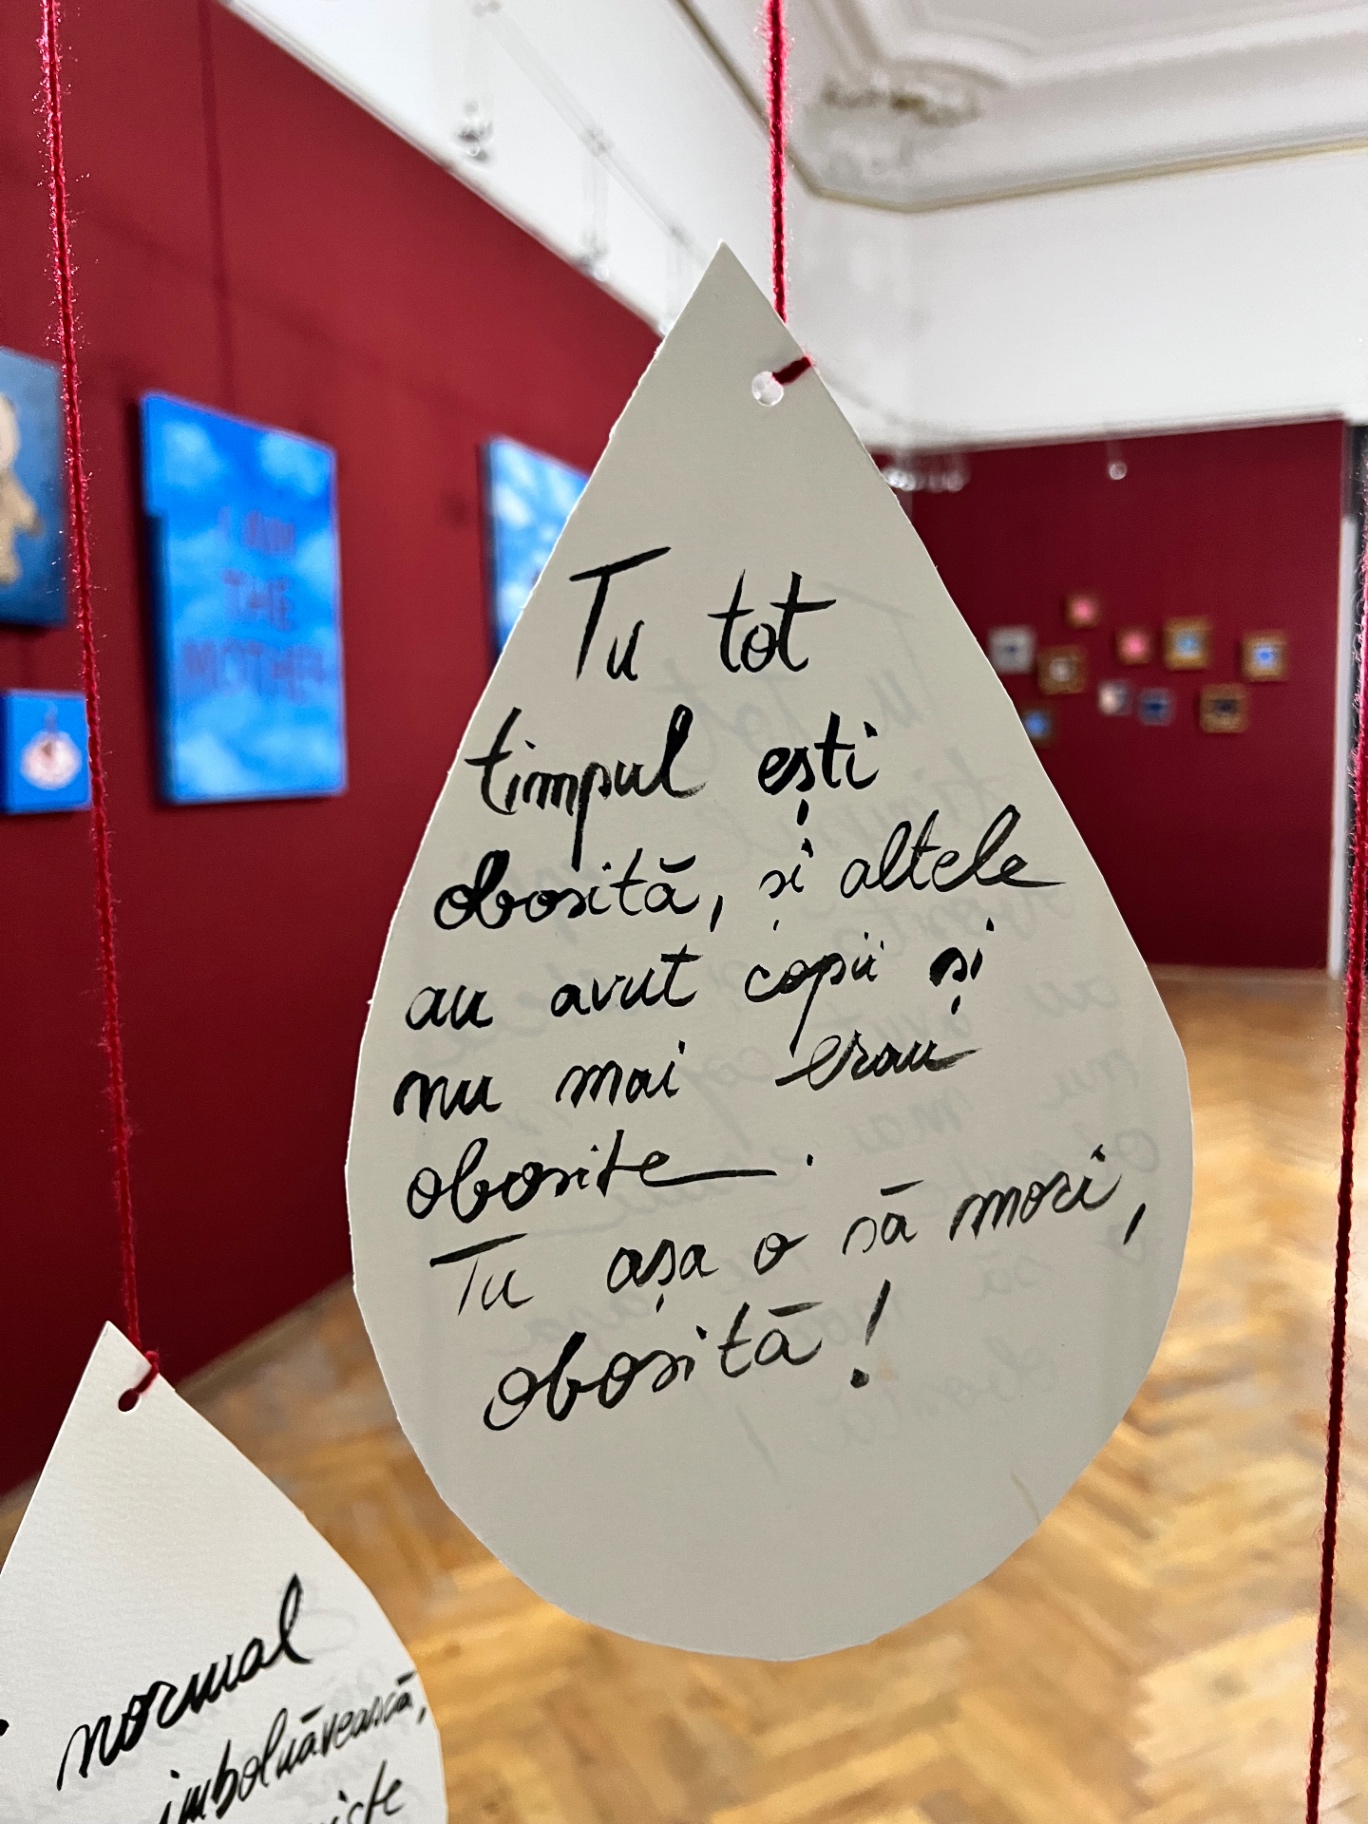 Tu tot
timpul ești
obosită, și altele
au avut copii și
nu mai erau
obosite.
Tu așa o să mori,
obosită!
normal
îmbolnăvească,
I AM
THE
MOTHER